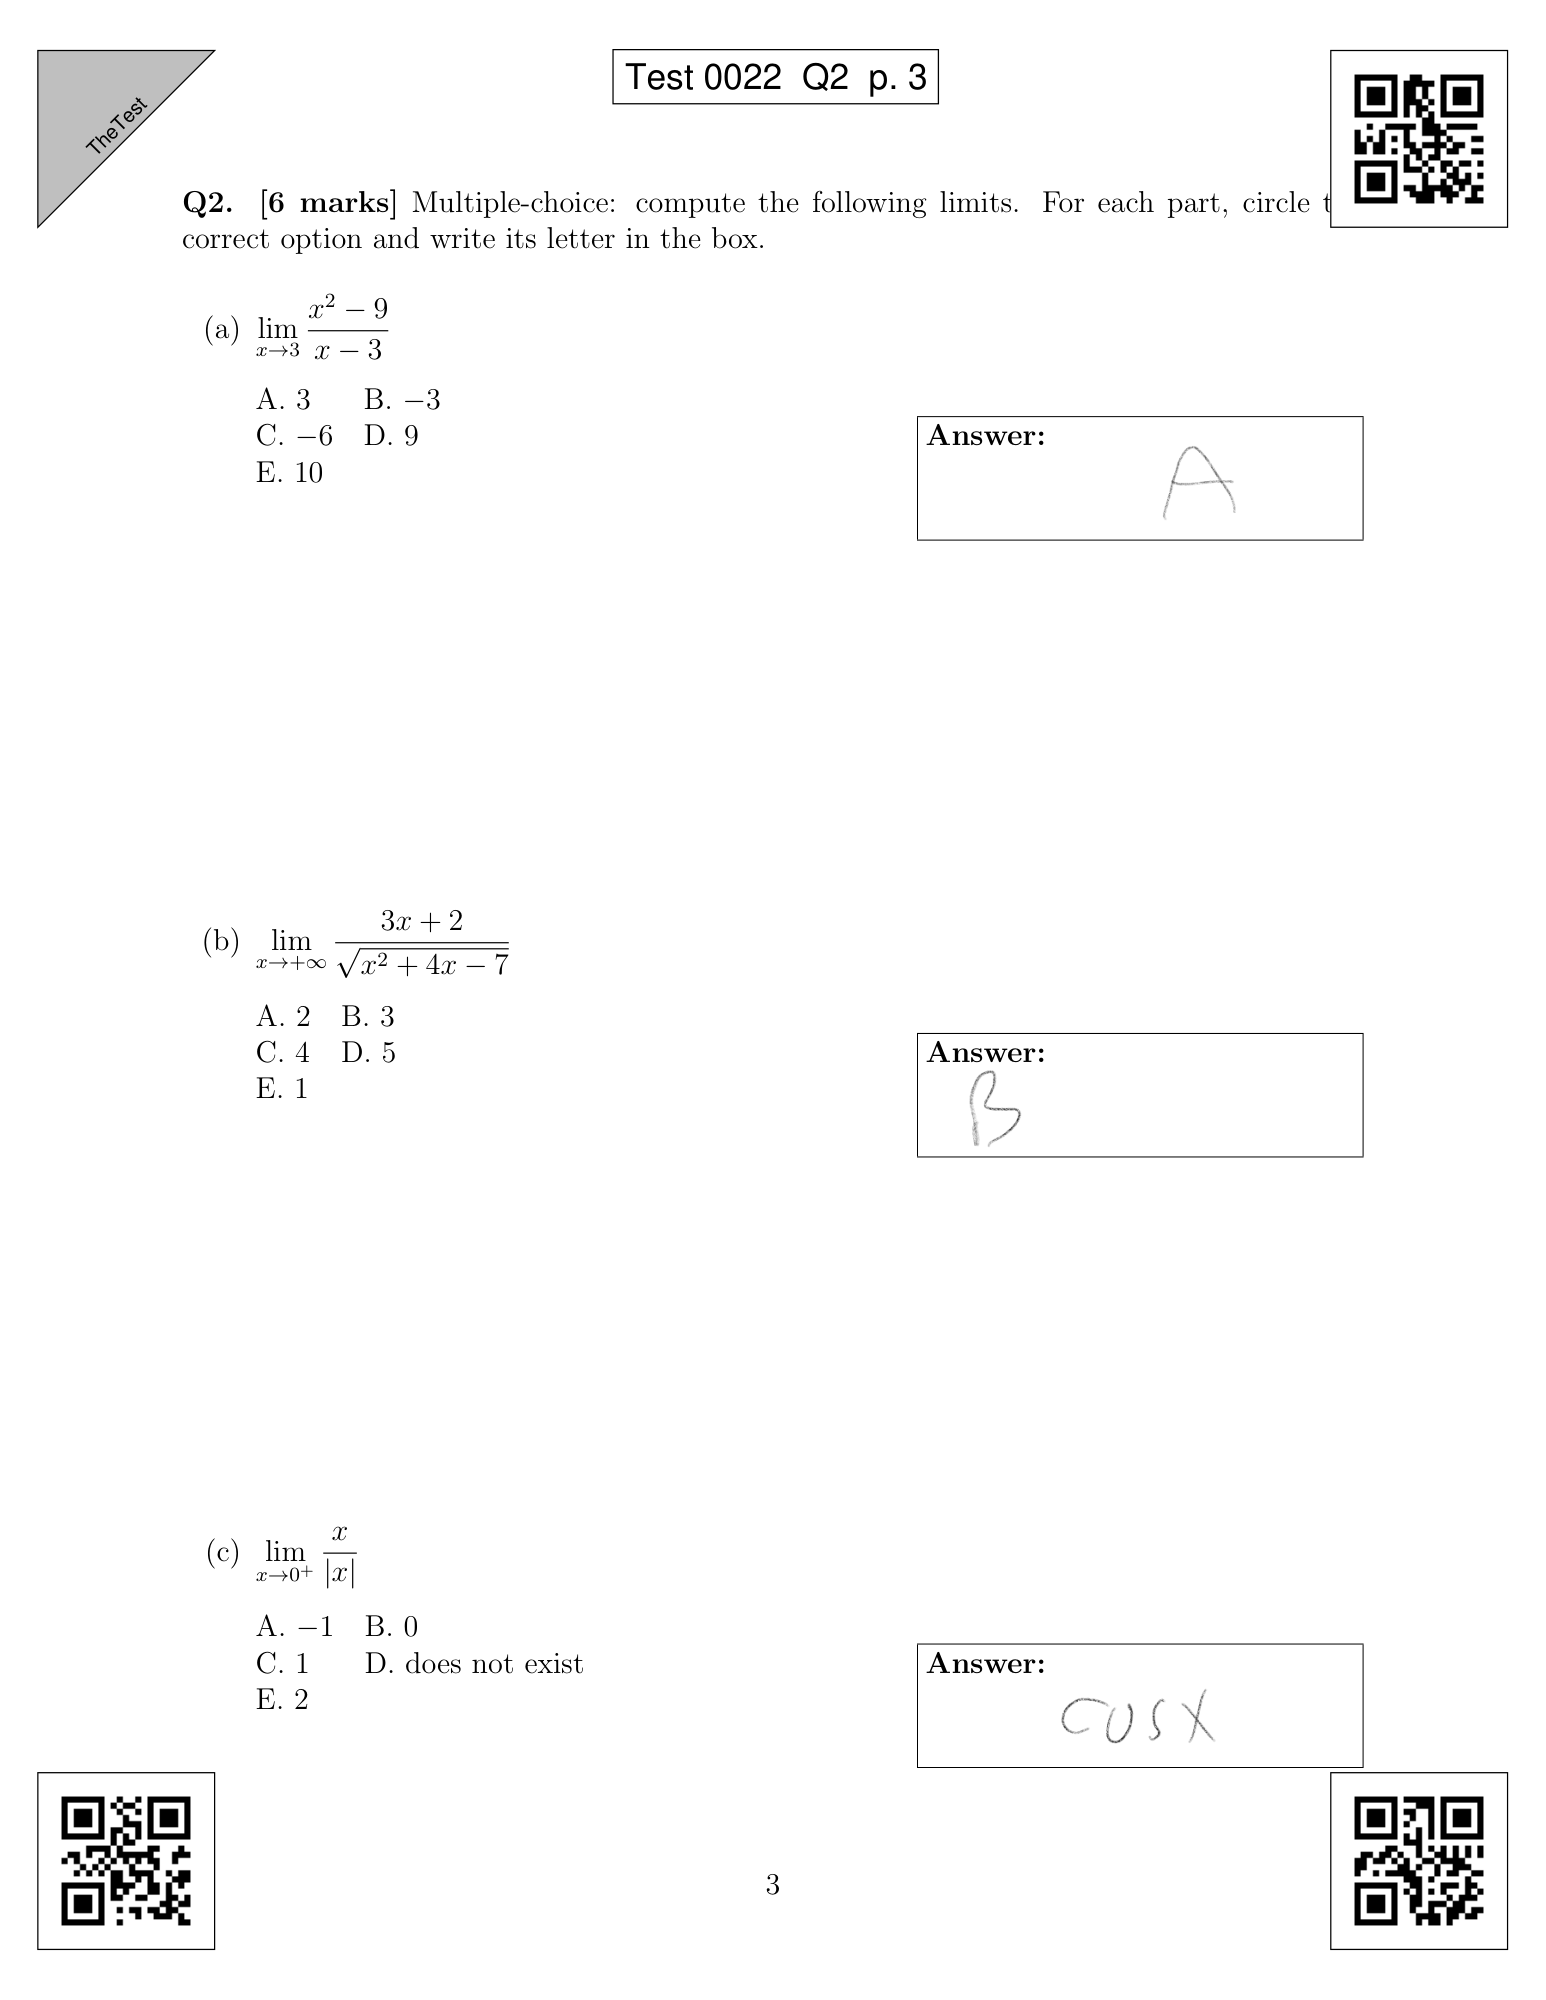 TheTest
Test 0022 Q2 p. 3
Q2. [6 marks] Multiple-choice: compute the following limits. For each part, circle t
correct option and write its letter in the box.
(a) lim x→3 (x² − 9)/(x − 3)
A. 3 B. −3
C. −6 D. 9
E. 10
Answer:
A
(b) lim x→+∞ (3x + 2)/√(x² + 4x − 7)
A. 2 B. 3
C. 4 D. 5
E. 1
Answer:
B
(c) lim x→0⁺ x/|x|
A. −1 B. 0
C. 1 D. does not exist
E. 2
Answer:
cosx
3